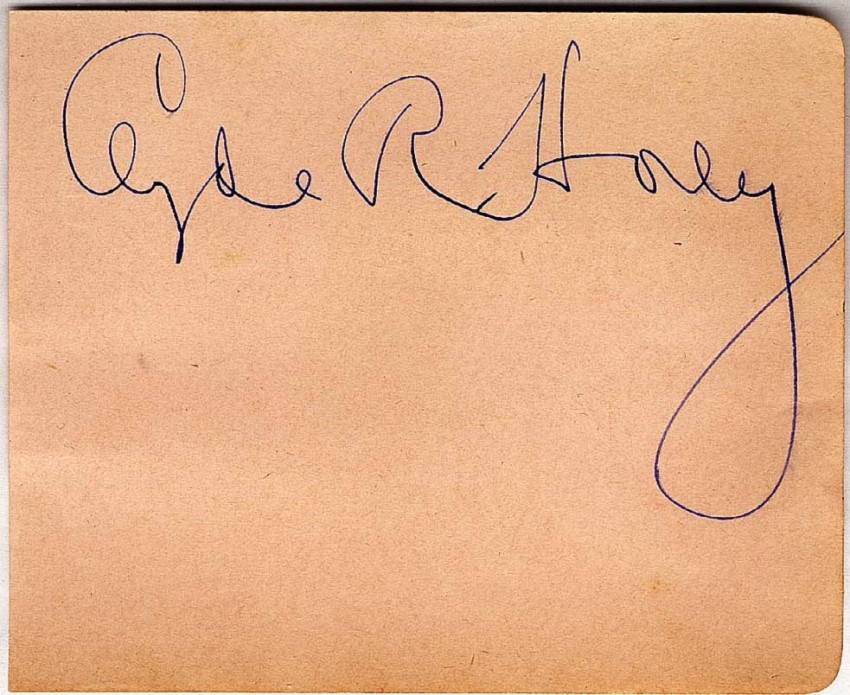 Clyde R Hoey